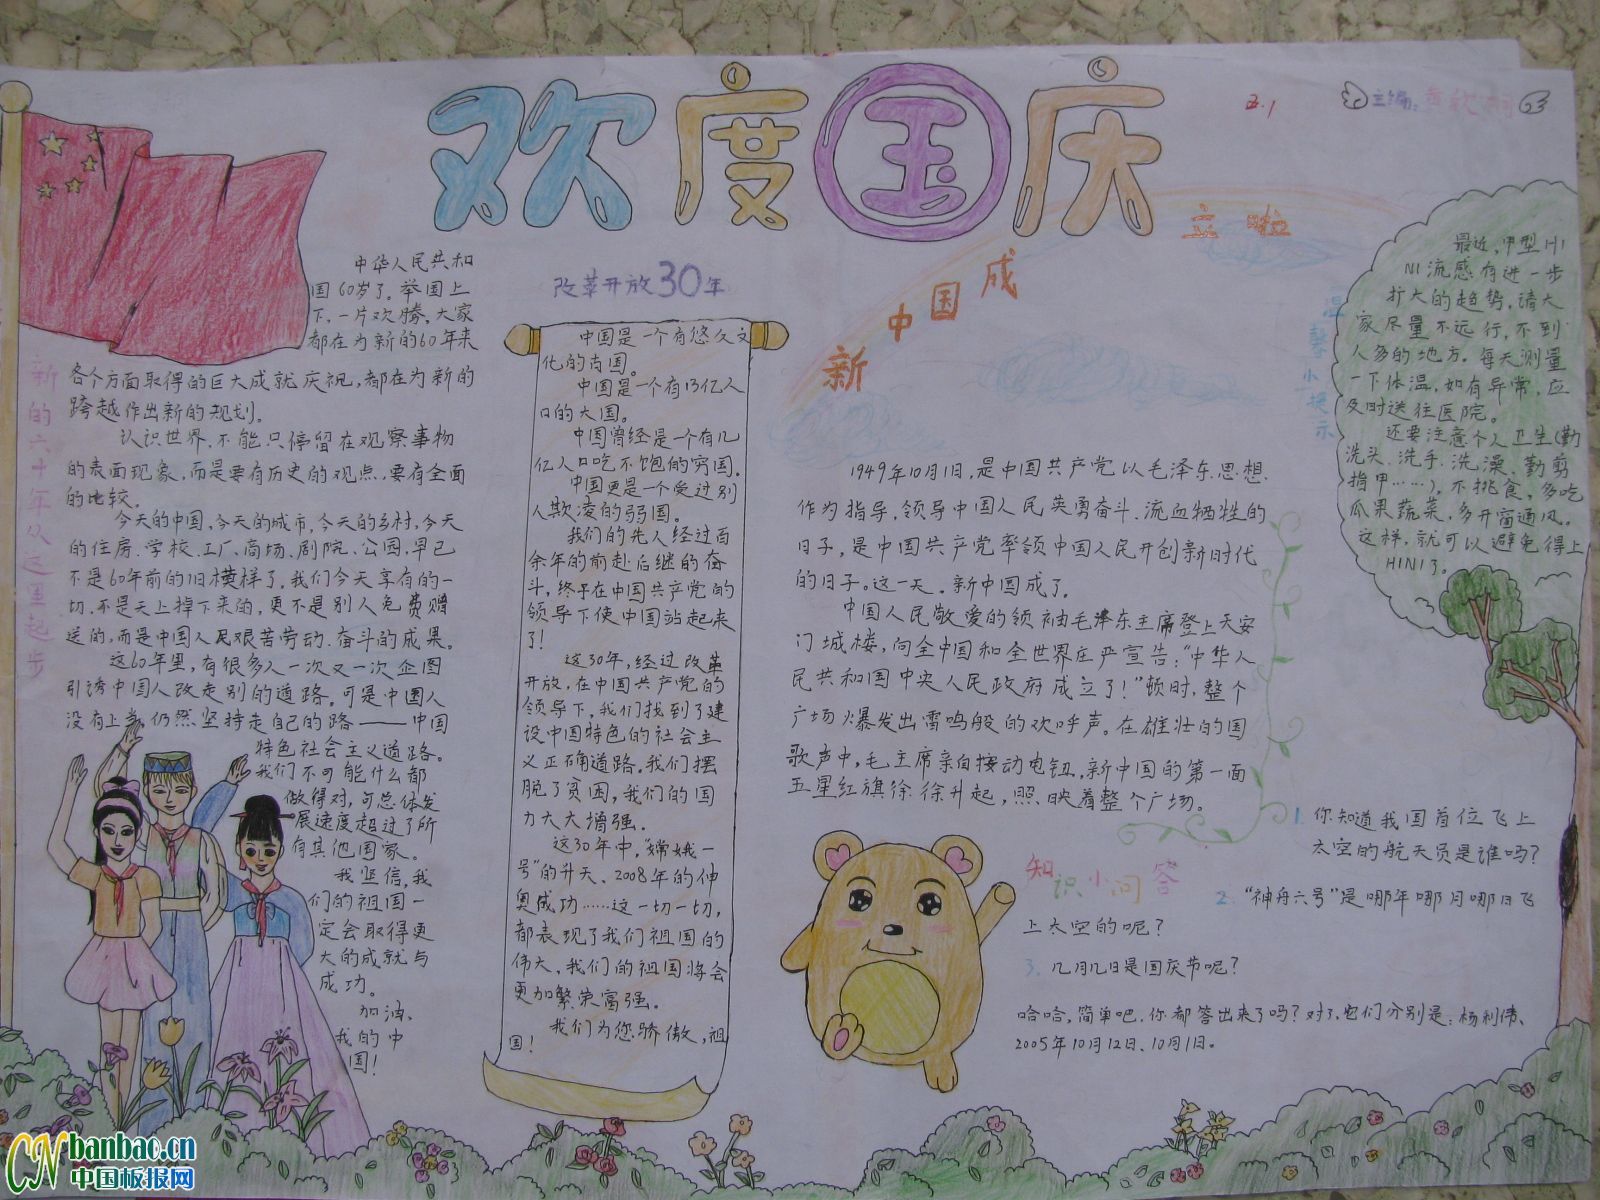 欢度国庆
五.1
主编:
中华人民共和
国60岁了。举国上
下,一片欢腾。大家
都在为新的60年来
各个方面取得的巨大成就庆祝,都在为新的
跨越作出新的规划。
认识世界,不能只停留在观察事物
的表面现象,而是要有历史的观点,要有全面
的比较。
今天的中国,今天的城市,今天的乡村,今天
的住房、学校、工厂、商场、剧院、公园,早已
不是60年前的旧模样了。我们今天享有的一
切,不是天上掉下来的,更不是别人免费赠
送的,而是中国人民艰苦劳动、奋斗的成果。
这60年里,有很多人一次又一次企图
引诱中国人改走别的道路。可是中国人
没有上当,仍然坚持走自己的路——中国
特色社会主义道路。
我们不可能什么都
做得对,可总体发
展速度超过了所
有其他国家。
我坚信,我
们的祖国一
定会取得更
大的成就与
成功。
加油、
我的中
国!
新的六十年从这里起步
改革开放30年
中国是一个有悠久文
化的古国。
中国是一个有13亿人
口的大国。
中国曾经是一个有几
亿人口吃不饱的穷国。
中国更是一个受过别
人欺凌的弱国。
我们的先人经过百
余年的前赴后继的奋
斗,终于在中国共产党的
领导下使中国站起来
了!
这30年,经过改革
开放,在中国共产党的
领导下,我们找到了建
设中国特色的社会主
义正确道路。我们摆
脱了贫困,我们的国
力大大增强。
这30年中,“嫦娥一
号”的升天、2008年的神
奥成功……这一切一切,
都表现了我们祖国的
伟大,我们的祖国将会
更加繁荣富强。
我们为您骄傲,祖
国!
新中国成立啦
1949年10月1日,是中国共产党以毛泽东思想
作为指导,领导中国人民英勇奋斗、流血牺牲的
日子,是中国共产党率领中国人民开创新时代
的日子。这一天,新中国成了。
中国人民敬爱的领袖毛泽东主席登上天安
门城楼,向全中国和全世界庄严宣告:“中华人
民共和国中央人民政府成立了!”顿时,整个
广场爆发出雷鸣般的欢呼声。在雄壮的国
歌声中,毛主席亲自按动电钮,新中国的第一面
五星红旗徐徐升起,照映着整个广场。
温馨小提示
最近,甲型H1
N1流感有进一步
扩大的趋势,请大
家尽量不远行,不到
人多的地方。每天测量
一下体温,如有异常,应
及时送往医院。
还要注意个人卫生(勤
洗头、洗手、洗澡、勤剪
指甲……),不挑食,多吃
瓜果蔬菜,多开窗通风。
这样,就可以避免得上
H1N1了。
知识小问答
1.你知道我国首位飞上
太空的航天员是谁吗?
2.“神舟六号”是哪年哪月哪日飞
上太空的呢?
3.几月几日是国庆节呢?
哈哈,简单吧,你都答出来了吗?对了,它们分别是:杨利伟、
2005年10月12日、10月1日。
CN banbao.cn
中国板报网